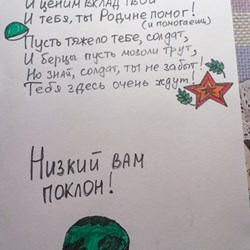 И ценим вклад твой
И тебя, ты Родине помог!
(и помогаешь)
Пусть тяжело тебе, солдат,
И берцы пусть мозоли трут,
Но знай, солдат, ты не забыт!
Тебя здесь очень ждут!
Низкий вам
поклон!